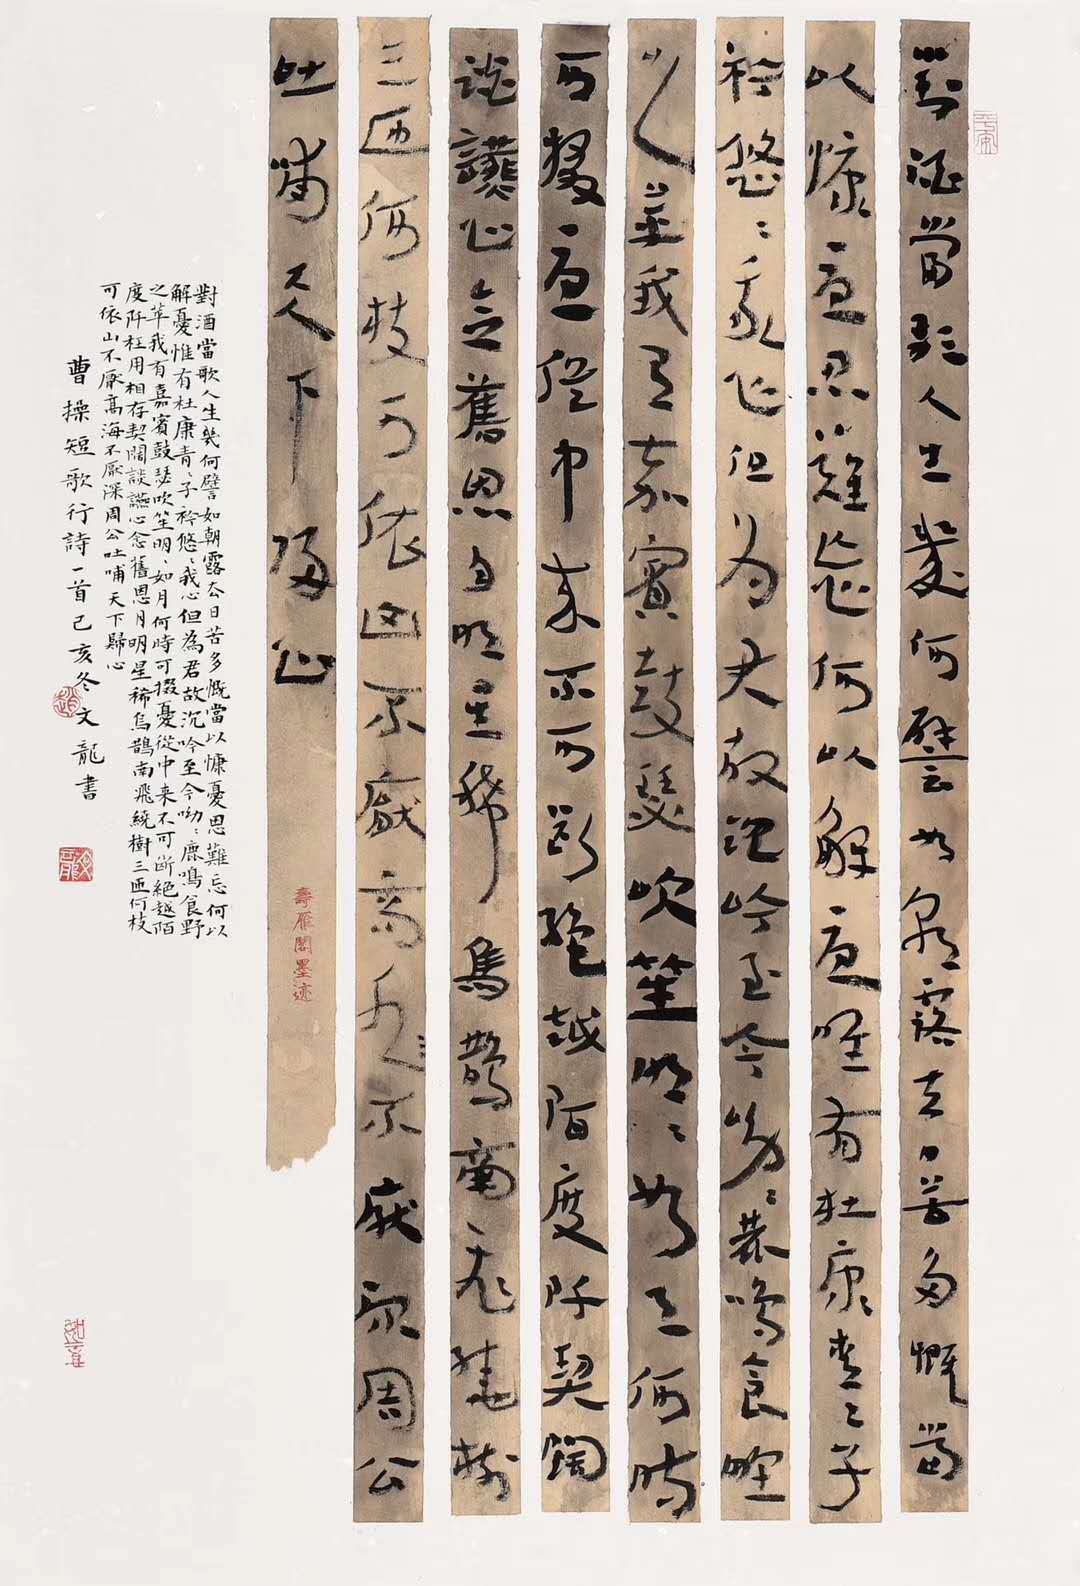 對酒當歌人生幾何譬如朝露去日苦多慨當
以慷憂思難忘何以解憂唯有杜康青〻子
衿悠〻我心但為君故沉吟至今呦〻鹿鳴食野
之苹我有嘉賓鼓瑟吹笙明〻如月何時
可掇憂從中來不可斷絕越陌度阡契闊
談讌心念舊恩月明星稀烏鵲南飛繞樹
三匝何枝可依山不厭高水不厭深周公
吐哺天下歸心
壽雁閣墨迹
對酒當歌人生幾何譬如朝露去日苦多慨當以慷憂思難忘何以
解憂惟有杜康青〻子衿悠〻我心但為君故沉吟至今呦〻鹿鳴食野
之苹我有嘉賓鼓瑟吹笙明〻如月何時可掇憂從中来不可斷絕越陌
度阡枉用相存契闊談讌心念舊恩月明星稀烏鵲南飛繞樹三匝何枝
可依山不厭高海不厭深周公吐哺天下歸心
曹操短歌行詩一首己亥冬文龍書